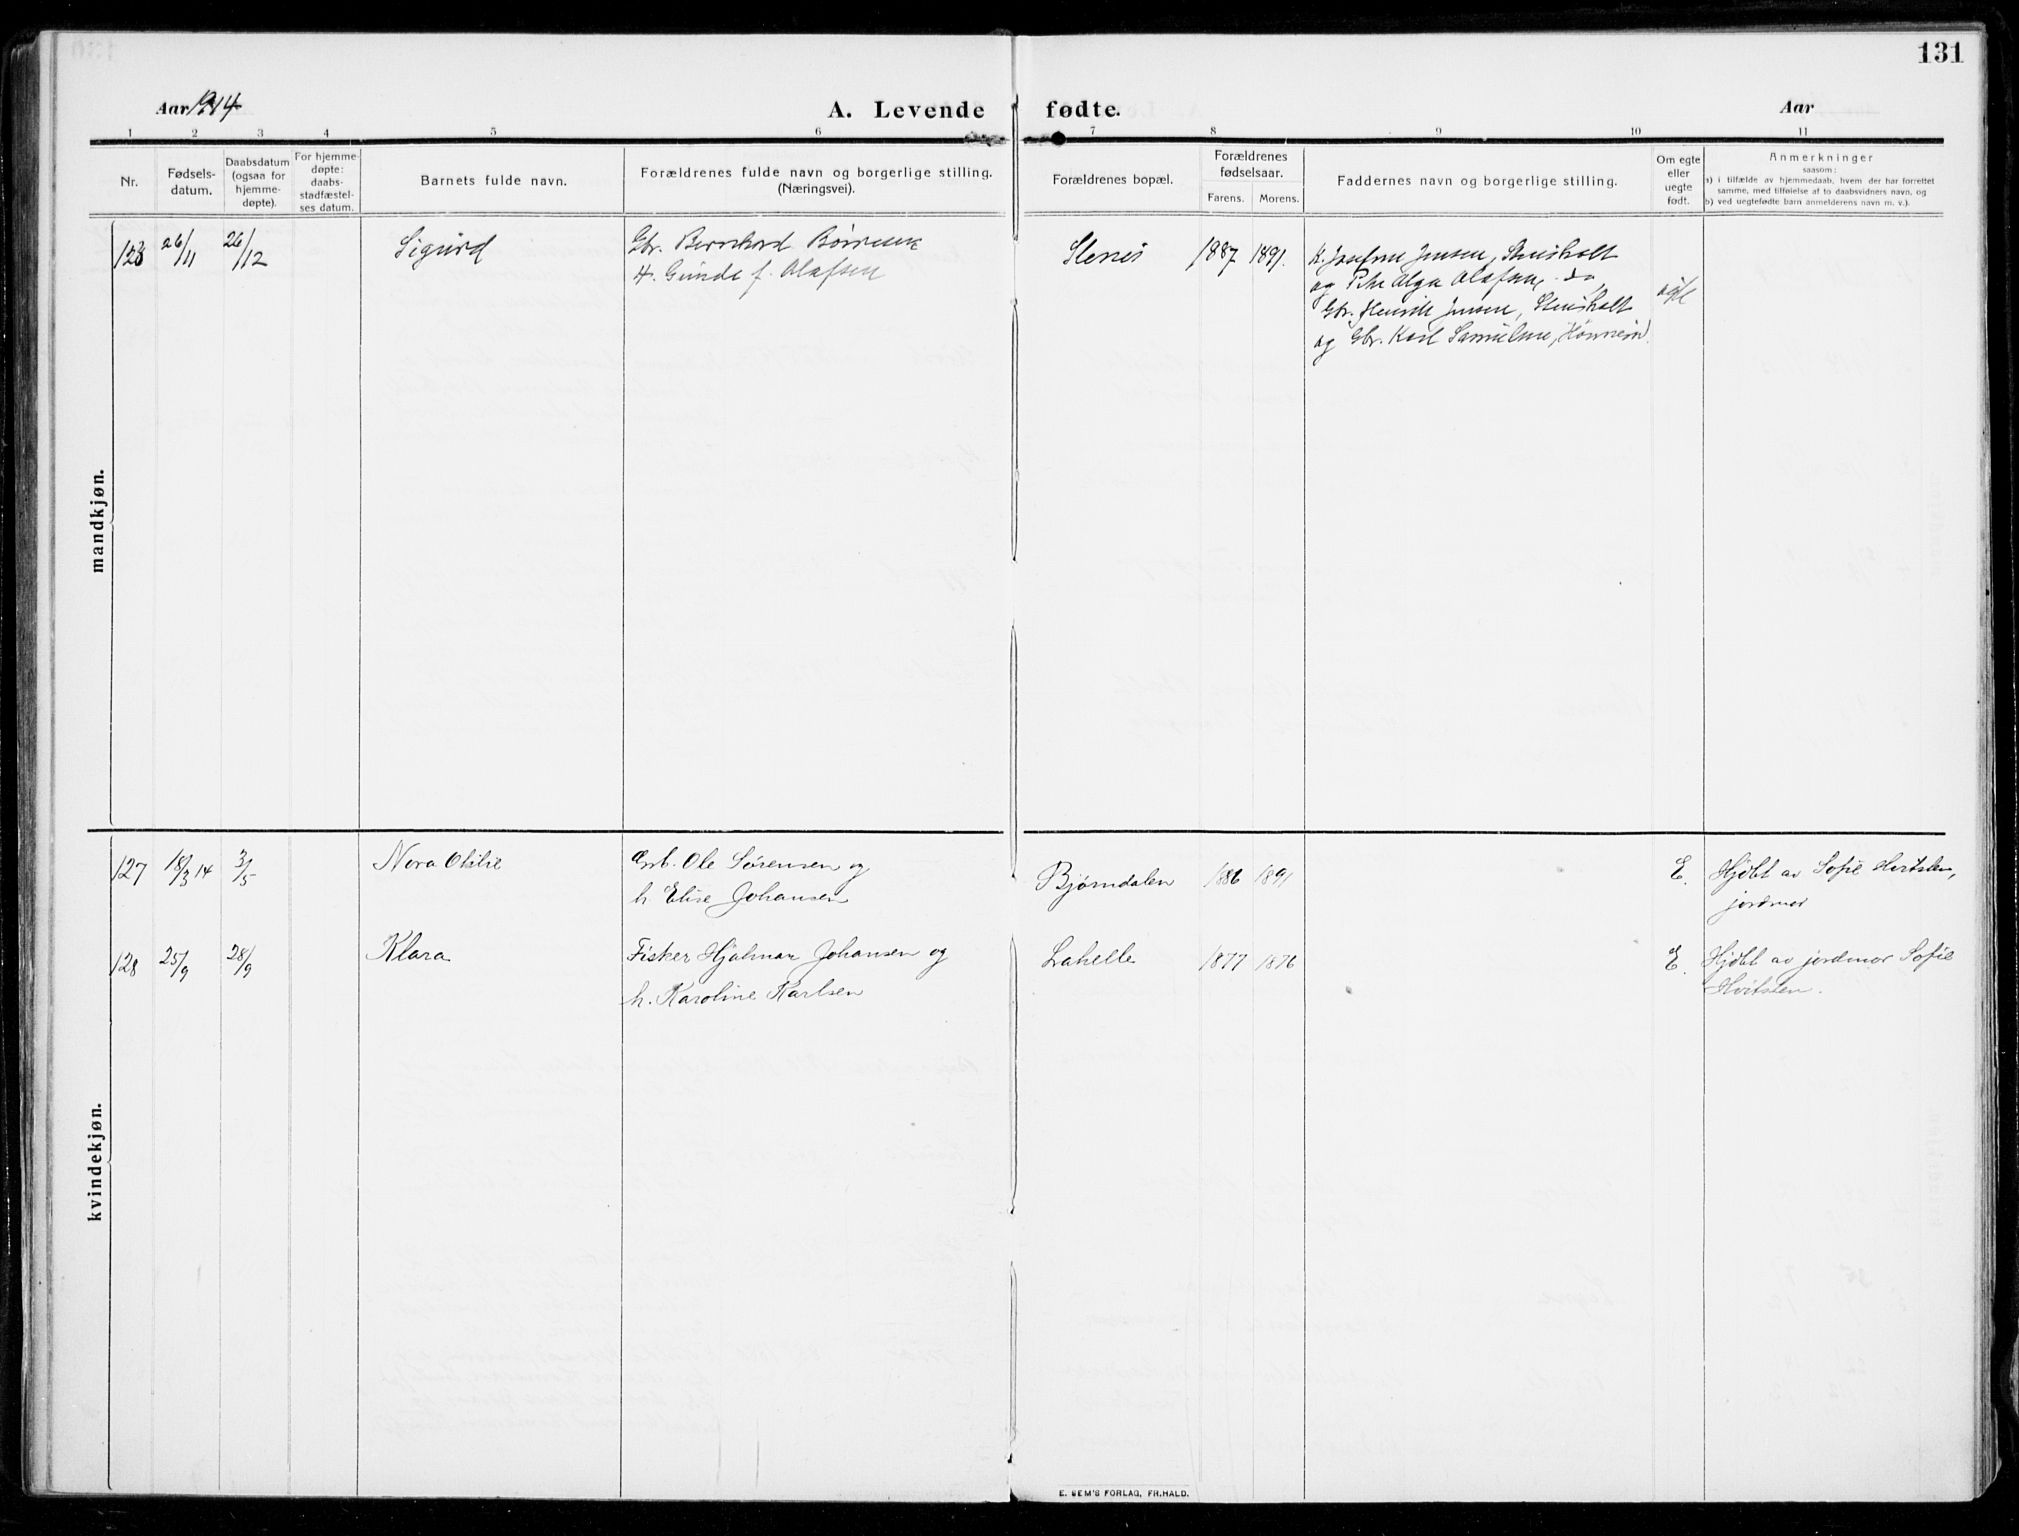 131
Aar 1914
A. Levende fødte.
Aar
1 2 3 4 5 6 7 8 9 10 11
Nr.
Fødsels-
datum.
Daabsdatum
(ogsaa for
hjemme-
døpte).
For hjemme-
døpte:
daabs-
stadfæstel-
ses datum.
Barnets fulde navn.
Forældrenes fulde navn og borgerlige stilling.
(Næringsvei).
Forældrenes bopæl.
Forældrenes
fødselsaar.
Farens. Morens.
Faddernes navn og borgerlige stilling.
Om egte
eller
uegte
født.
Anmerkninger
saasom:
a) i tilfælde av hjemmedaab, hvem der har forrettet
samme, med tilføielse af to daabsvidners navn, og
b) ved uegtefødte barn anmelderens navn m. v.).
mandkjøn.
123 26/11 26/12 Sigurd
Gbr. Bernhard Børresen
H. Gunda f. Olafsen
1887 1891.
K. Josefine Jensen, Stensholt
og Pike Olga Olafsen do
Gbr. Henrik Jensen, Stensholt
og Gbr. Karl Samuelsen,
egte
kvindekjøn.
127 18/3 14 3/5 Nora Otilie
Ole Sørensen og
h. Elise Johansen
Bjørndalen 1886 1891 E.
Hjdbt av Sofie Hvitsten,
jordmor
128 25/9 28/9 Klara
Fisker Hjalmar Johansen og
h. Karoline Karlsen
Lahelle 1877 1876 E.
Hjdbt av jordmor Sofie
Hvitsten.
E. SEM'S FORLAG, FR.HALD.